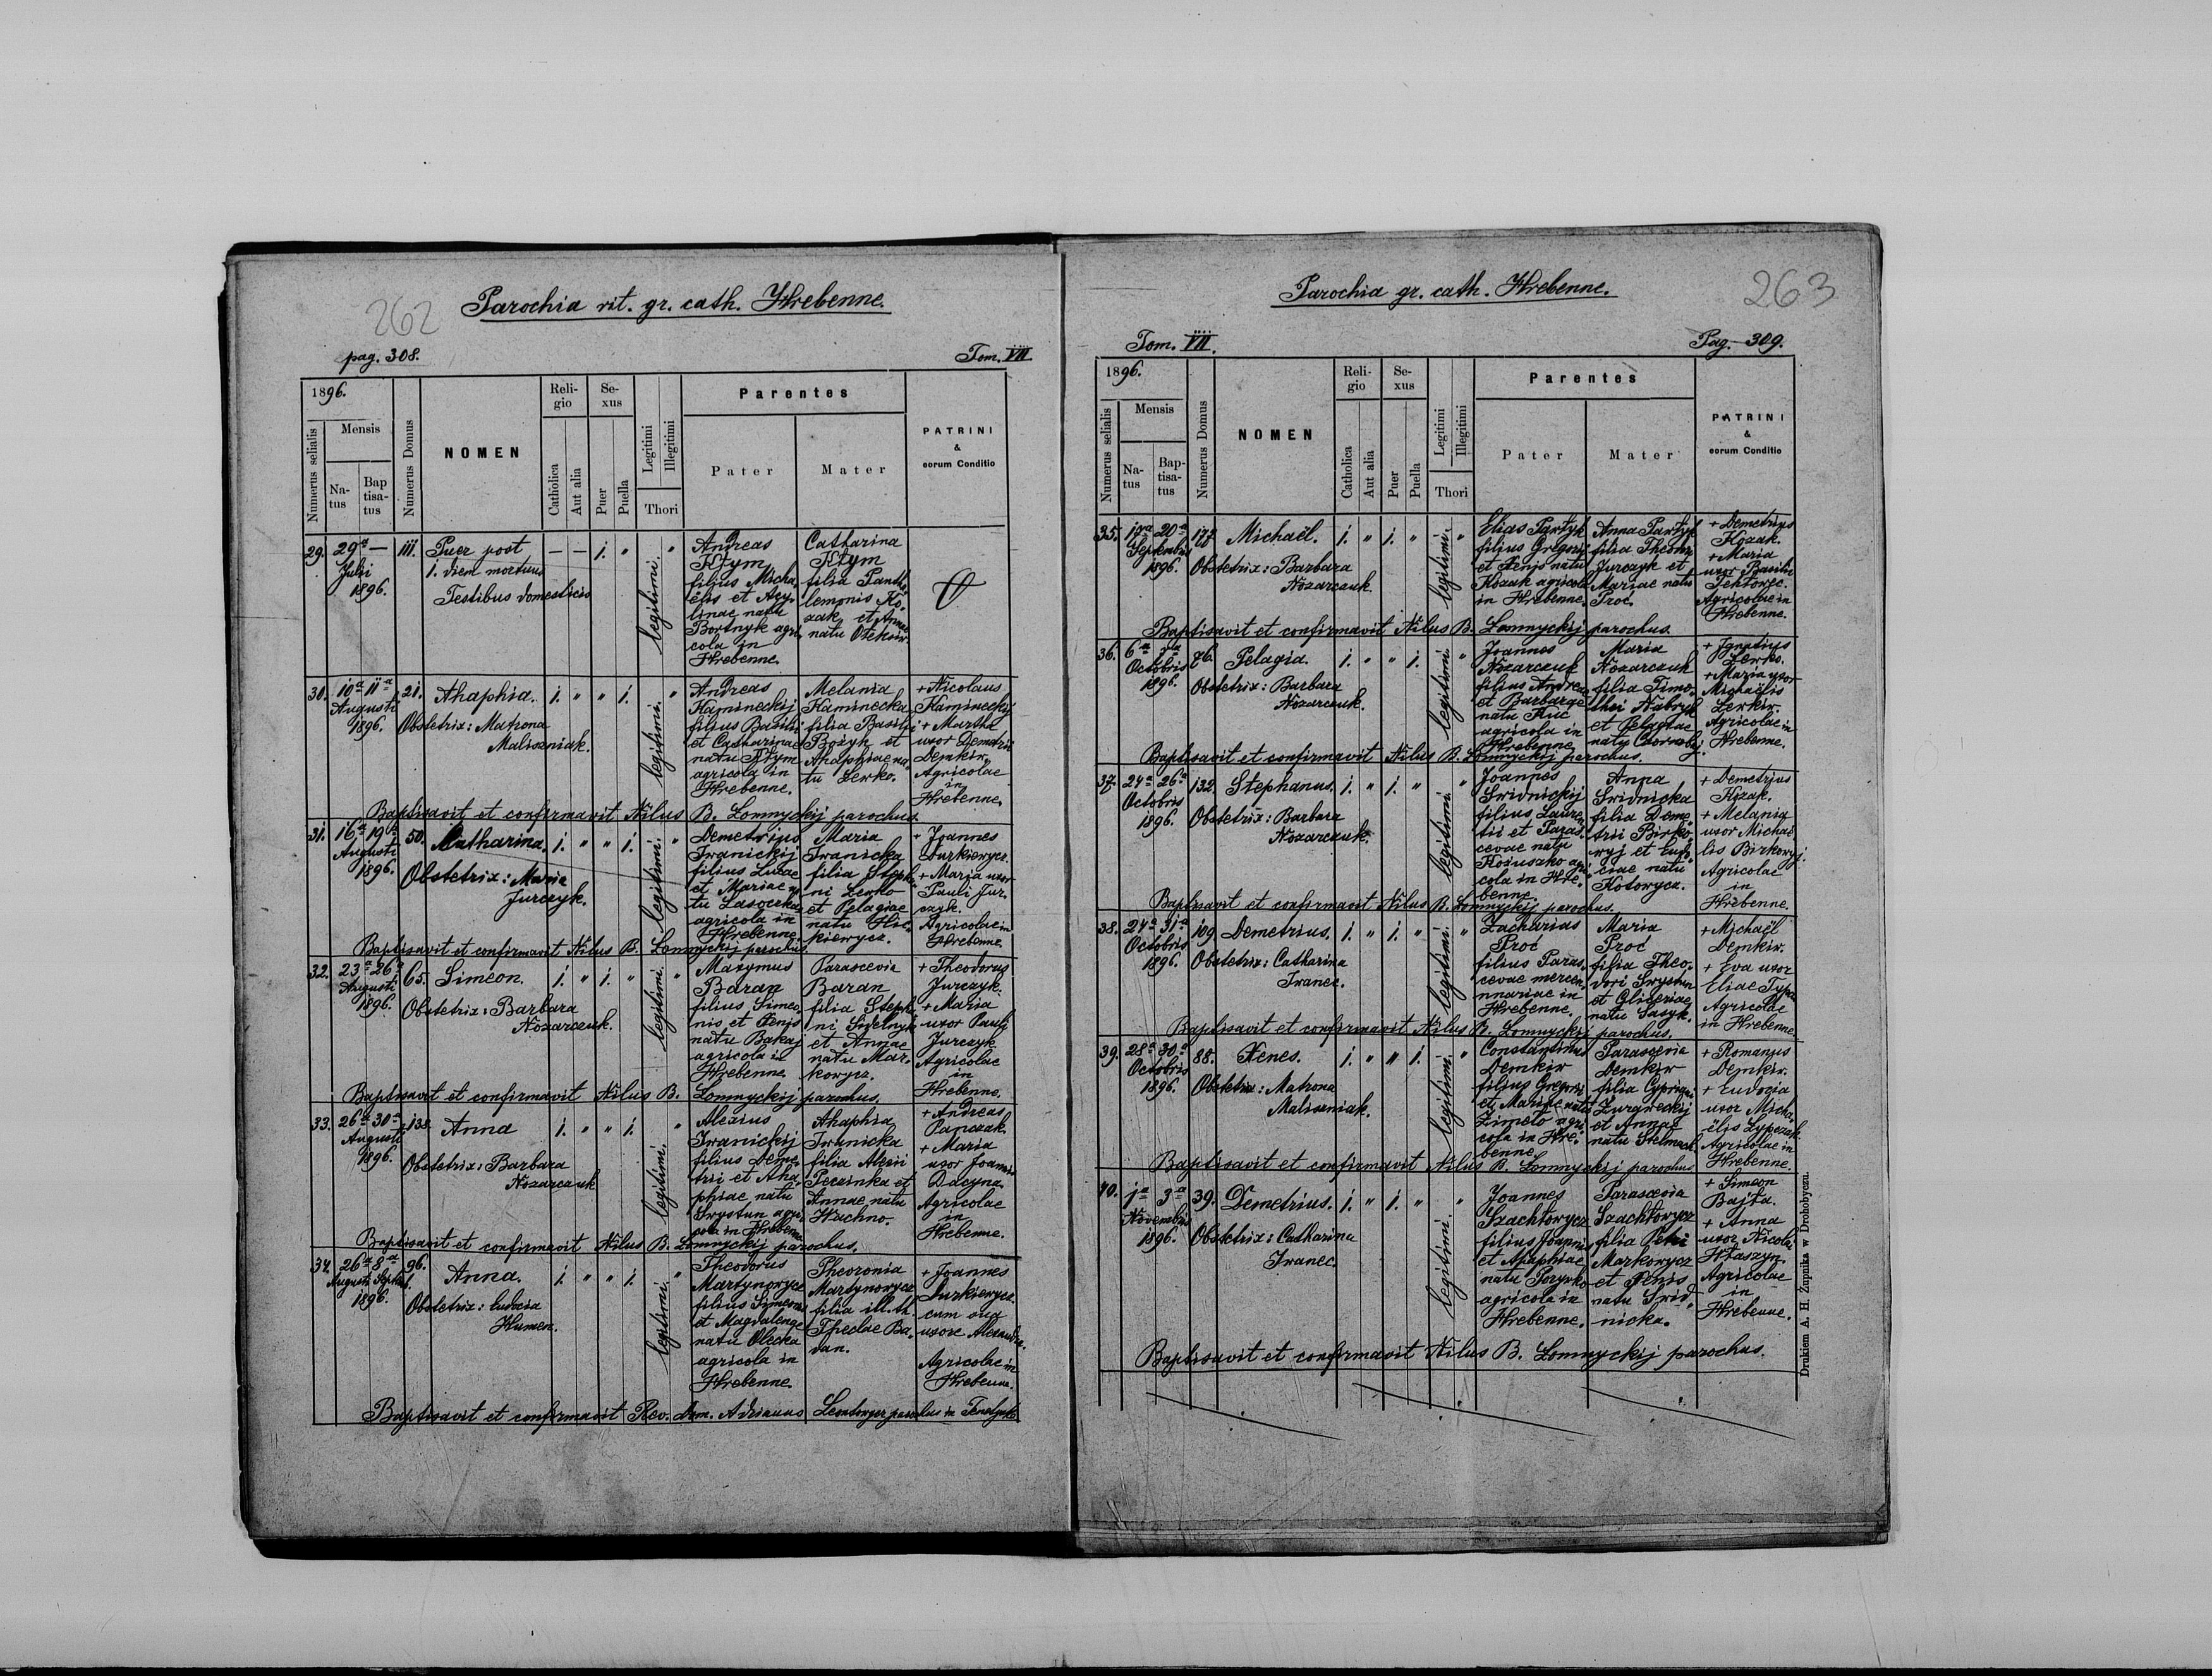 262
Parochia rit. gr. cath. Hrebenne.
pag. 308.
Tom. VII
1896.
Numerus serialis
Mensis
Na-
tus
Bap
tisa-
tus
Numerus Domus
NOMEN
Reli-
gio
Catholica
Aut alia
Se-
xus
Puer
Puella
Legitimi
Illegitimi
Thori
Parentes
Pater
Mater
PATRINI
&
eorum Conditio
29.
29a —
Julii
1896.
111.
Puer post
1. diem mortuus
Testibus domesticis
— — 1. "
legitimi.
"
Andreas
Kłym
filius Micha-
ëlis et Aqy-
linae natu
Bortnyk agri
cola in
Hrebenne.
Catharina
Kłym
filia Pantha
lemonis Ko-
zak et Annae
natu Ołeksiw.
30.
10a 11a
Augusti
1896.
21.
Ahaphia.
Obstetrix: Matrona
Maliszniak.
1. " " 1.
legitimi.
"
Andreas
Kamineckij
filius Basilii
et Catharinae
natu Kłym
agricola in
Hrebenne.
Melania
Kaminecka
filia Basilii
Bożyk et
Ahaphiae na-
tu Lewko.
+ Nicolaus
Kamineckij
+ Martha
uxor Demetrii
Demkiw.
Agricolae
in
Hrebenne.
Baptisavit et confirmavit Nilus B. Lomnyckij parochus.
31.
16a 19a
Augusti
1896.
50.
Catharina.
Obstetrix: Maria
Jurczyk.
1. " " 1.
legitimi.
"
Demetrius
Iwanickij
filius Lucae
et Mariae na
tu Lasoczka
agricola in
Hrebenne.
Maria
Iwanicka
filia Steph-
ni Lewko
et Pelagiae
natu Hic-
kiewycz.
+ Joannes
Durkiewycz.
+ Maria uxor
Pauli Jur-
czyk.
Agricolae in
Hrebenne.
Baptisavit et confirmavit Nilus B. Lomnyckij parochus.
32.
23a 26a
Augusti
1896.
65.
Simeon.
Obstetrix: Barbara
Nozarczuk.
1. " 1. "
legitimi.
"
Maxymus
Baran
filius Simeo-
nis et Xenjs
natu Bakaj
agricola in
Hrebenne.
Parascevia
Baran
filia Steph-
ni Sidelnyk
et Annae
natu Mar-
kowycz.
+ Theodorus
Jurczyk.
+ Maria
uxor Pauli
Jurczyk
Agricolae
in
Hrebenne.
Baptisavit et confirmavit Nilus B. Lomnyckij parochus.
33.
26a 30a
Augusti
1896.
138.
Anna
Obstetrix: Barbara
Nozarczuk
1. " " 1.
legitimi.
"
Alexius
Iwanickij
filius Deme-
trii et Aha-
phiae natu
Srystun agri-
cola in Hrebenne
Ahaphia
Iwanicka
filia Alexii
Peczinka et
Annae natu
Huchno.
+ Andreas
Panczak.
+ Maria
uxor Joannis
Dacyna.
Agricolae
in
Hrebenne.
Baptisavit et confirmavit Nilus B. Lomnyckij parochus.
34.
26a 8a
Augusti Septeb.
1896.
96.
Anna.
Obstetrix: Eudocia
Humen.
1. " " 1.
legitimi.
"
Theodorus
Martynowycz
filius Simeonis
et Magdalenae
natu Olecka
agricola in
Hrebenne.
Theoronia
Martynowycz
filia ill. th.
Theclae Ba-
dan.
+ Joannes
Durkiewycz
cum sua
uxore Alexandra.
Agricolae in
Hrebenne.
Baptisavit et confirmavit Rev. Dom. Adrianus parochus in
263
Parochia gr. cath. Hrebenne.
Tom. VII.
Pag. 309.
1896.
Numerus serialis
Mensis
Na-
tus
Bap-
tisa-
tus
Numerus Domus
NOMEN
Reli-
gio
Catholica
Aut alia
Se-
xus
Puer
Puella
Legitimi
Illegitimi
Thori
Parentes
Pater
Mater
PATRINI
&
eorum Conditio
35.
17a 20a
Septembris
1896.
177.
Michaël.
Obstetrix: Barbara
Nozarczuk.
1. " 1. "
legitimi.
"
Elias Partyk
filius Gregorij
et Xenjs natu
Kozak agricola
in Hrebenne.
Anna Partyk
filia Theodori
Jurczyk et
Mariae natu
Proć.
+ Demetrius
Kozak.
+ Maria
uxor Basilii
Tehtowec.
Agricolae in
Hrebenne.
Baptisavit et confirmavit Nilus B. Lomnyckij parochus.
36.
6a 7a
Octobris
1896.
86.
Pelagia.
Obstetrix: Barbara
Nozarczuk.
1. " " 1.
legitimi.
"
Joannes
Nozarczuk
filius Andreae
et Barbarae
natu Kuć
agricola in
Hrebenne
Maria
Nozarczuk
filia Timo-
thei Nabryk
et Pelagiae
natu Czornobij.
+ Ignatius
Lewko.
+ Maria uxor
Michaëlis
Lewkiw.
Agricolae in
Hrebenne.
Baptisavit et confirmavit Nilus B. Lomnyckij parochus.
37.
24a 26a
Octobris
1896.
132.
Stephanus.
Obstetrix: Barbara
Nozarczuk.
1. " 1. "
legitimi.
"
Joannes
Sridnickij
filius Lauren-
tii et Paras-
cevae natu
Kożuszko agri-
cola in Hre-
benne.
Anna
Sridnicka
filia Deme-
trii Birko-
wyj et Eudo-
ciae natu
Kotowycz.
+ Demetrius
Kozak.
+ Melania
uxor Michaë
lis Birkowyj.
Agricolae
in
Hrebenne.
Baptisavit et confirmavit Nilus B. Lomnyckij parochus.
38.
24a 31a
Octobris
1896.
109.
Demetrius.
Obstetrix: Catharina
Iwanec.
1. " 1. "
legitimi.
"
Zacharias
Proć
filius Paras-
cevae mercen-
nnariae in
Hrebenne.
Maria
Proć
filia Theo-
dori Srystun
et Gliceriae
natu Sasyk.
+ Michaël
Demkiw.
+ Eva uxor
Eliae
Agricolae
in Hrebenne.
Baptisavit et confirmavit Nilus B. Lomnyckij parochus.
39.
28a 30a
Octobris
1896.
88.
Xenes.
Obstetrix: Matrona
Maliszniak.
1. " " 1.
legitimi.
"
Constantinus
Demkiw
filius Gregorii
et Mariae natu
Zimoło agri-
cola in Hre-
benne.
Parascevia
Demkiw
filia Cypriani
Zuraweckij
et Annae
natu Stelmach
+ Romanus
Demkiw.
+ Eudoxia
uxor Micha
ëlis Lypczak.
Agricolae in
Hrebenne.
Baptisavit et confirmavit Nilus B. Lomnyckij parochus
40.
1a 3a
Novembris
1896.
39.
Demetrius.
Obstetrix: Catharina
Iwanec.
1. " 1. "
legitimi.
"
Joannes
Szachtowycz
filius Joannis
et Ahaphiae
natu Pozywko
agricola in
Hrebenne.
Parascevia
Szachtowycz
filia Petri
Markowycz
et Xenis
natu Srid-
nicka.
+ Simeon
Bajta.
+ Anna
uxor Nicolai
Hłaszyn.
Agricolae
in
Hrebenne.
Baptisavit et confirmavit Nilus B. Lomnyckij parochus.
Drukiem A. H. Żupnika w Drohobyczu.